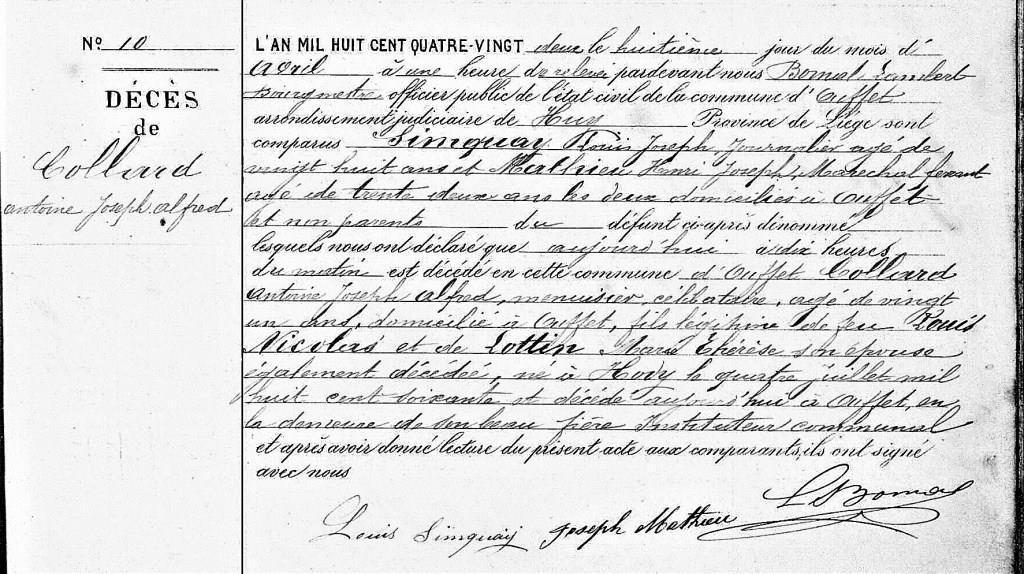 Nº 10
DÉCÈS
de
Collard
antoine Joseph alfred
L'AN MIL HUIT CENT QUATRE-VINGT deux le huitième jour du mois d'
Avril à une heure de relevée pardevant nous Bomal Lambert
Bourgmestre officier public de l'état civil de la commune d' Ouffet
arrondissement judiciaire de Huy Province de Liége sont
comparus Simquay Louis Joseph, Journalier agé de
vingt huit ans et Mathieu Henri Joseph, Marechal ferrant
agé de trente deux ans les deux domiciliés à Ouffet
et non parents du défunt ci-après dénommé
lesquels nous ont déclaré que aujourd'hui à dix heures
du matin est décédé en cette commune d' Ouffet Collard
Antoine Joseph alfred, menuisier, célibataire, agé de vingt
un ans, domicilié à Ouffet, fils légitime de feu Louis
Nicolas et de Lottin Marie Thérèse son épouse
également décédée, né à Hody le quatre juillet mil
huit cent soixante et décédé aujourd'hui à Ouffet, en
la demeure de son beau frère Instituteur communal
et après avoir donné lecture du présent acte aux comparants, ils ont signé
avec nous
Louis Simquay Joseph Mathieu L Bomal